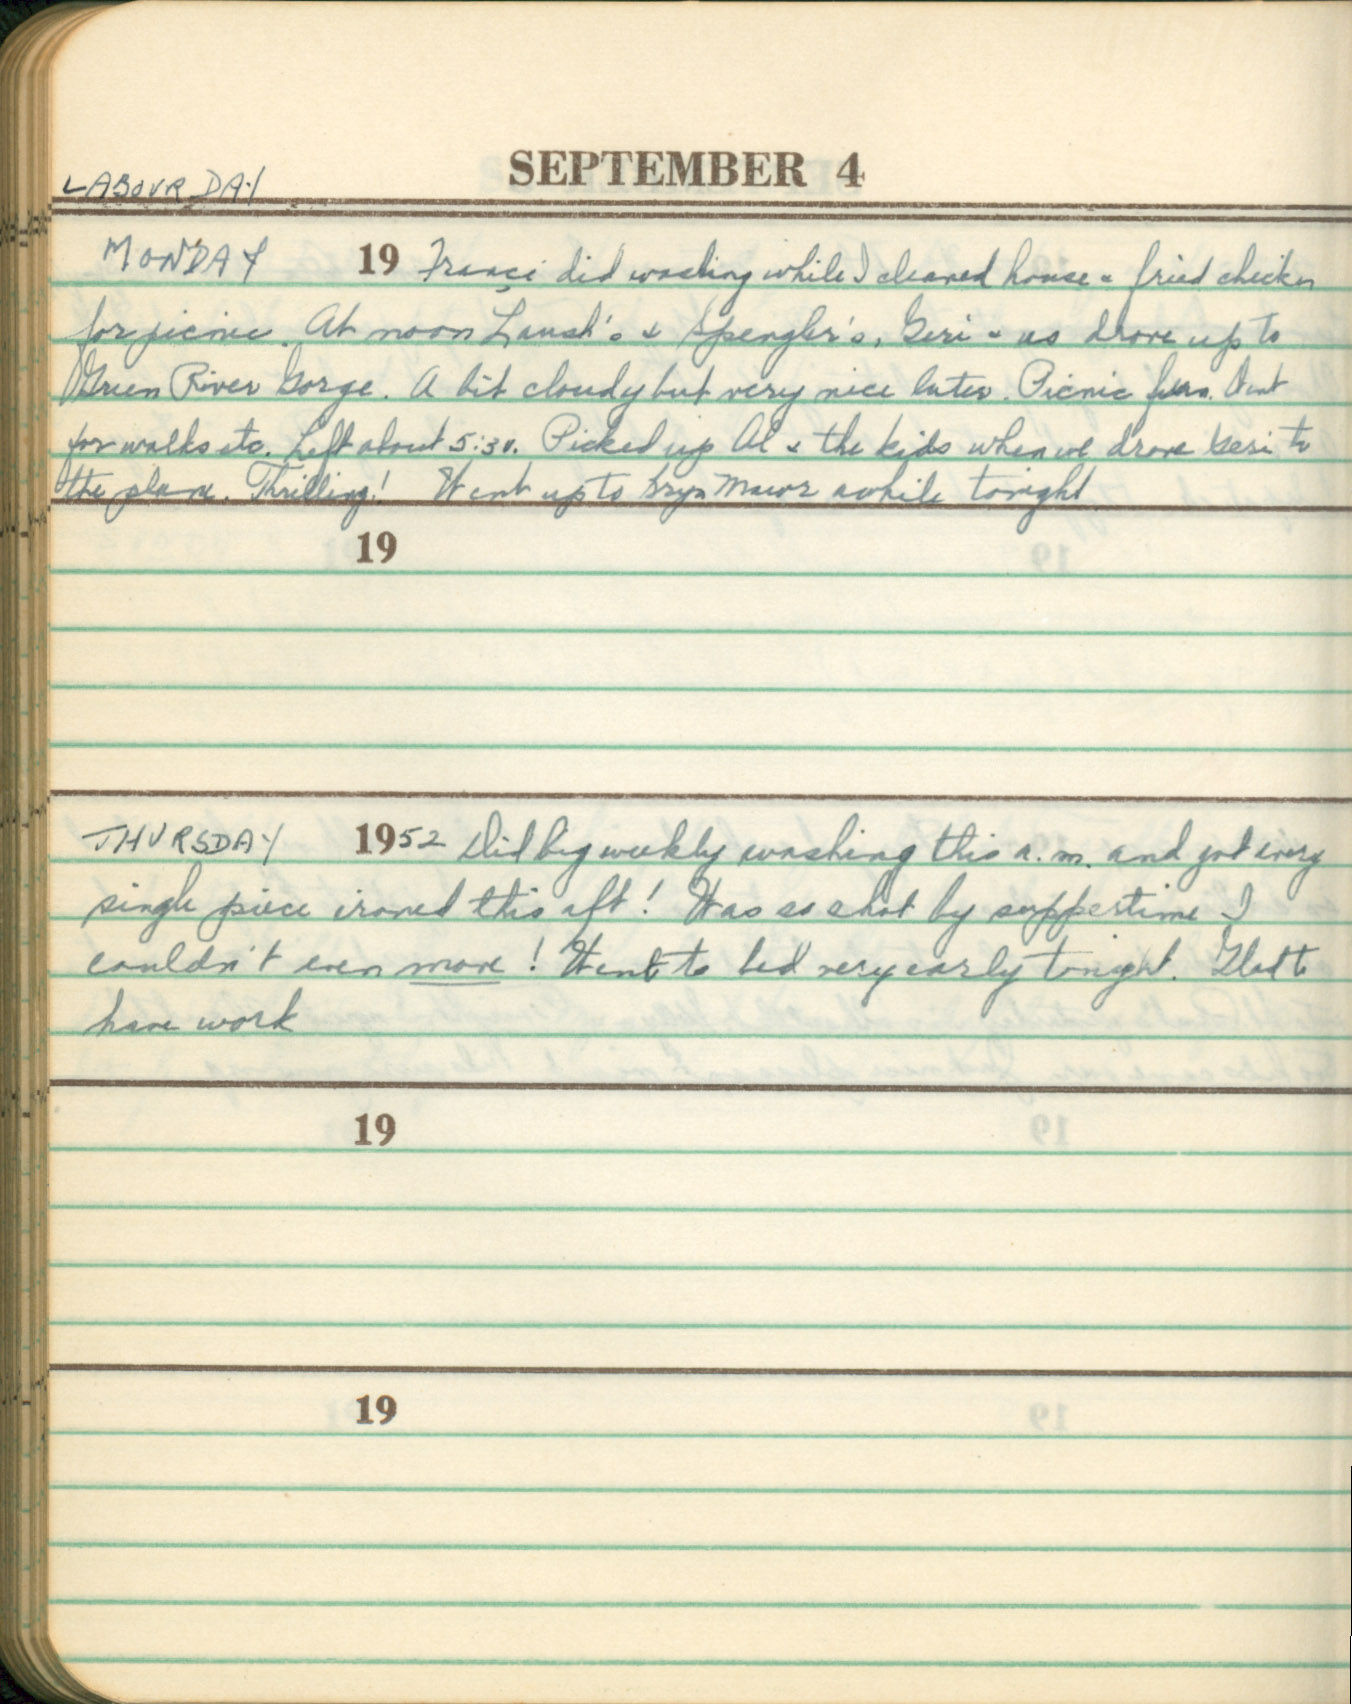 SEPTEMBER 4
LABOUR DAY
MONDAY 19 Franci did washing while I cleaned house & fried chicken
for picnic. At noon Lansk's & Spengler's, Geri & us drove up to
Green River Gorge. A bit cloudy but very nice later. Picnic fun. Went
for walks etc. Left about 5:30. Picked up Al & the kids when we drove Geri to
the plane. Thrilling! Went up to Bryn Mawr awhile tonight
19
THURSDAY 1952 Did big weekly washing this a.m. and got every
single piece ironed this aft! Was so shot by suppertime I
couldn't even move! Went to bed very early tonight. Glad to
have work
19
19